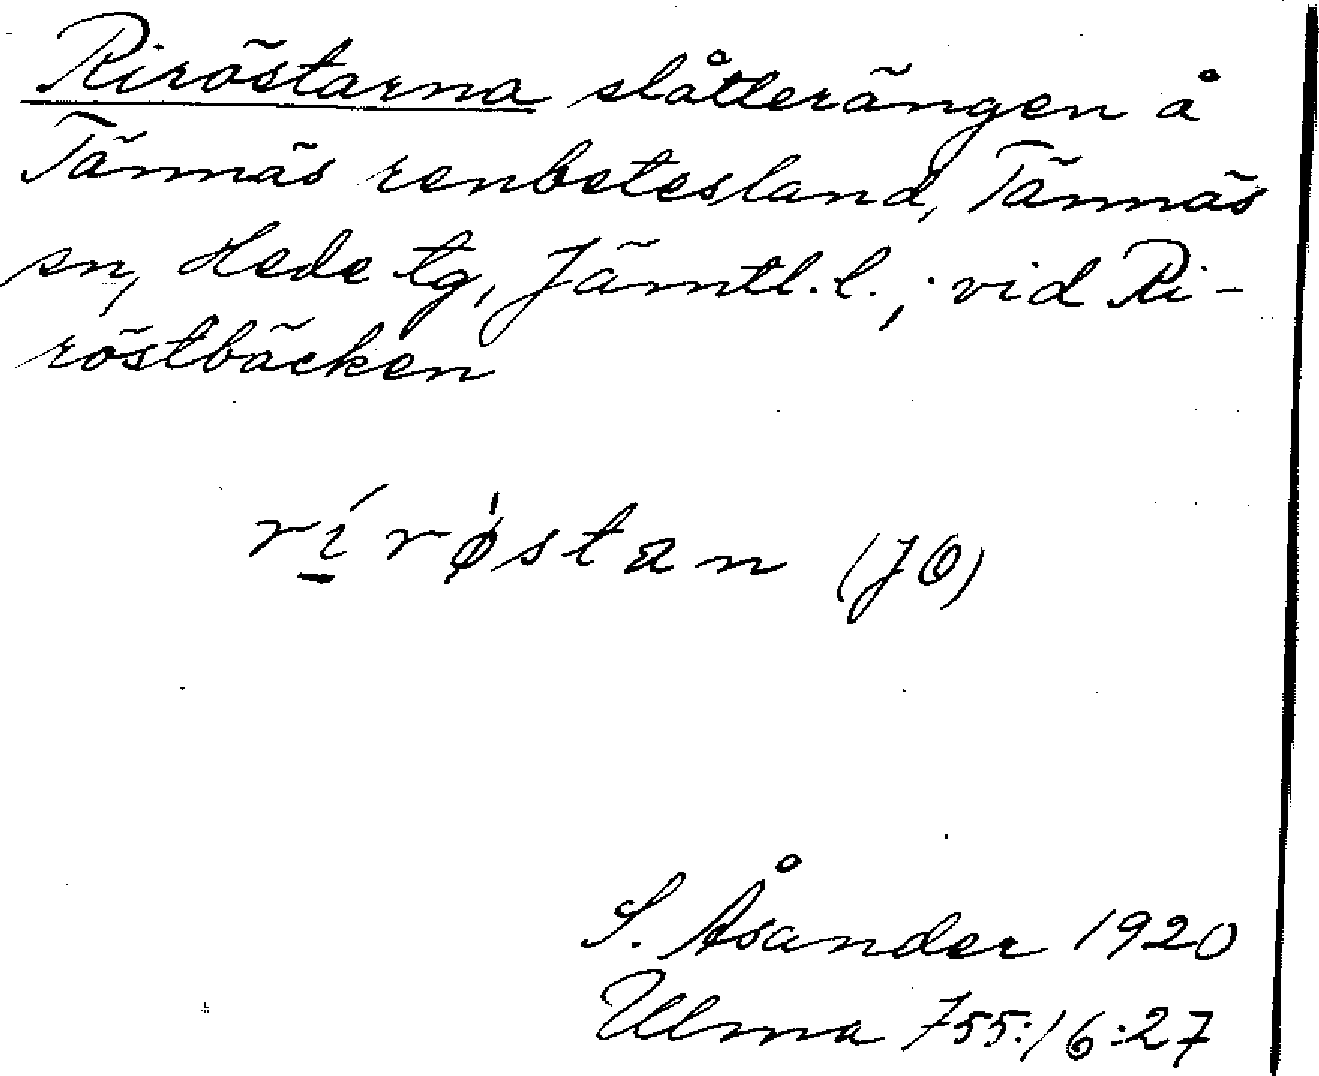 Riröstarna slåtterängen å
Tännäs renbetesland, Tännäs
sn, Hede tg, Jämtl. l.; vid Ri-
röstbäcken
rí̱ røstan (JÖ)
S. Åsander 1920
Ulma 755:16:27